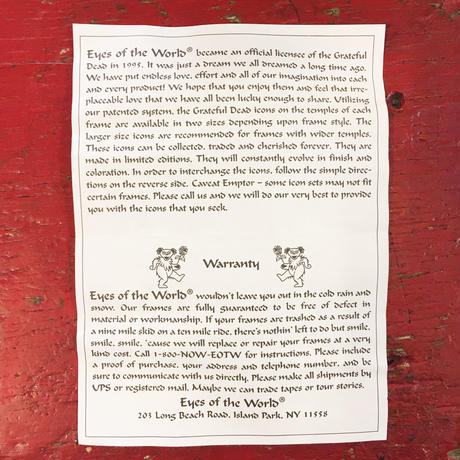 Eyes of the World® became an official licensee of the Grateful
Dead in 1995. It was just a dream we all dreamed a long time ago.
We have put endless love, effort and all of our imagination into each
and every product! We hope that you enjoy them and feel that irre-
placeable love that we have all been lucky enough to share. Utilizing
our patented system, the Grateful Dead icons on the temples of each
frame are available in two sizes depending upon frame style. The
larger size icons are recommended for frames with wider temples.
These icons can be collected, traded and cherished forever. They are
made in limited editions. They will constantly evolve in finish and
coloration. In order to interchange the icons, follow the simple direc-
tions on the reverse side. Caveat Emptor – some icon sets may not fit
certain frames. Please call us and we will do our very best to provide
you with the icons that you seek.
Warranty
Eyes of the World® wouldn't leave you out in the cold rain and
snow. Our frames are fully guaranteed to be free of defect in
material or workmanship. If your frames are trashed as a result of
a nine mile skid on a ten mile ride, there's nothin' left to do but smile,
smile, smile, 'cause we will replace or repair your frames at a very
kind cost. Call 1-800-NOW-EOTW for instructions. Please include
a proof of purchase, your address and telephone number, and be
sure to communicate with us directly. Please make all shipments by
UPS or registered mail. Maybe we can trade tapes or tour stories.
Eyes of the World®
203 Long Beach Road, Island Park, NY 11558